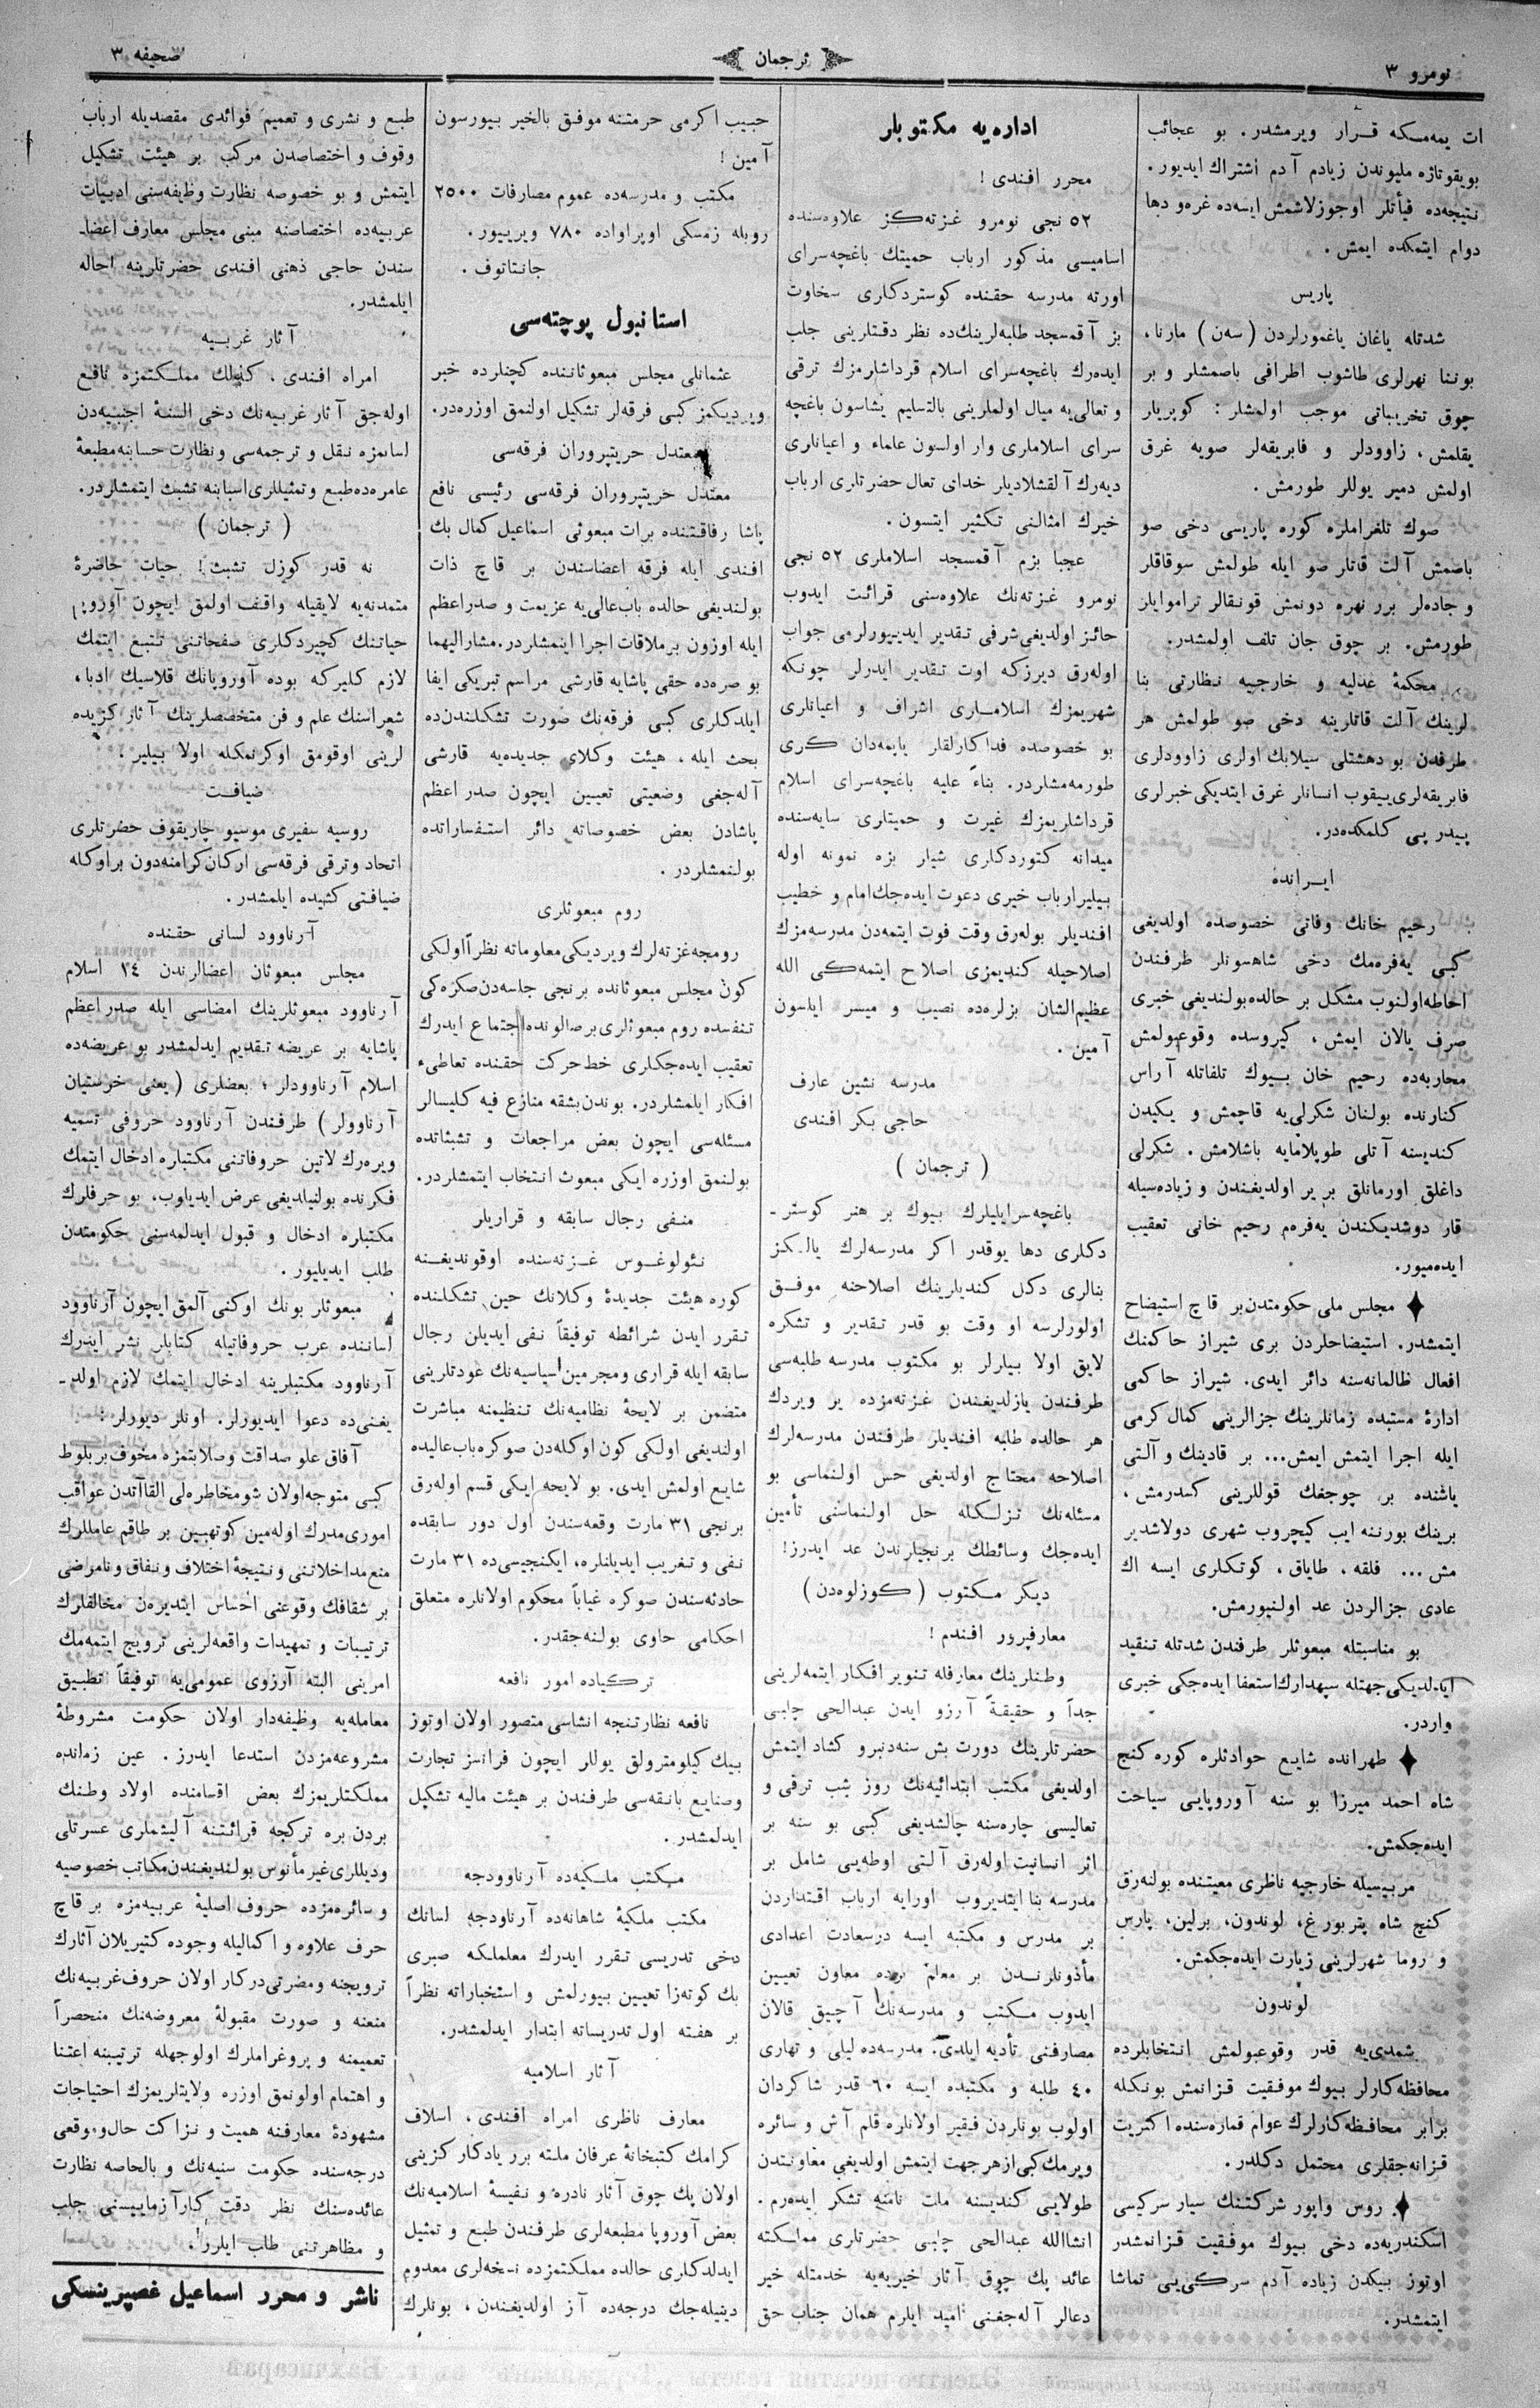 نومرو ٣
ترجمان
صحیفه ٣
ات یمه‌مسكه قـرار ویرمشدر. بو عجائب
بویقوتاژه ملیوندن زیاده آدم اشتراك ایدیور.
نتیجه‌ده فیأتلر اوجوزلاشمش ایسه‌ده غره‌و دها
دوام ایتمكده ایمش.
پاریس
شدتله یاغان یاغمورلردن (سه‌ن) مارنا،
یوننا نهرلری طاشوب اطرافی باصمشلر و بر
چوق تخریباتی موجب اولمشلر: كوپریلر
یقلمش، زاوودلر و فابریقه‌لر صویه غرق
اولمش دمیر یوللر طورمش.
صوك تلغراملره كوره پاریسی دخی صو
باصمش آلت قاتلر صو ایله طولمش سوقاقلر
و جاده‌لر برر نهره دونمش قونقالر تراموایلر
طورمش. بر چوق جان تلف اولمشدر.
محكمهٔ عدلیه و خارجیه نظارتی بنا
لرینك آلت قاتلرینه دخی صو طولمش هر
طرفدن بو دهشتلی سیلابك اولری زاوودلری
فابریقه‌لری ییقوب انسانلر غرق ایتدیكی خبرلری
پیدر پی كلمكده‌در.
ایـرانده
رحیم خانك وفاتی خصوصده اولدیغی
كبی یه‌فره‌مك دخی شاهسونلر طرفندن
احاطه اولنوب مشكل بر حالده بولندیغی خبری
صرف یالان ایمش، كیروسده وقوعبولمش
محاربه‌ده رحیم خان بـیوك تلفاتله آراس
كنارنده بولنان شكرلی‌یه قاچمش و یكیدن
كندیسنه آتلی طوپلامایه باشلامش. شكرلی
داغلق اورمانلق بر یر اولدیغندن و زیاده‌سیله
قار دوشدیكندن یه‌فره‌م رحیم خانی تعقیب
ایده‌میور.
✦ مجلس ملی حكومتدن بر قاچ استیضاح
ایتمشدر. استیضاحلردن بری شیراز حاكمنك
افعال ظالمانه‌سنه دائر ایدی. شیراز حاكمی
ادارهٔ مستبده زمانلرینك جزالرینی كمال كرمی
ایله اجرا ایتمش ایمش... بر قادینك و آلتی
یاشنده بر چوجغك قوللرینی كسدرمش،
برینك بورننه ایب كیچروب شهری دولاشدیر
مش... فلقه، طایاق، كوتكلری ایسه اك
عادی جزالردن عد اولنیورمش.
بو مناسبتله مبعوثلر طرفندن شدتله تنقید
ایدلدیكی جهتله سپهدارك استعفا ایده‌جكی خبری
واردر.
✦ طهرانده شایع حوادثلره كوره كنج
شاه احمد میرزا بو سنه آوروپایی سیاحت
ایده‌جكمش.
مربیسیله خارجیه ناظری معیتنده بولنه‌رق
كنج شاه پتربورغ، لوندون، برلین، پارس
و روما شهرلرینی زیارت ایده‌جكمش.
لوندون
شمدی‌یه قدر وقوعبولمش انتخابلرده
محافظه‌كارلر بیوك موفقیت قزانمش بونكله
برابر محافظه‌كارلرك عوام قماره‌سنده اكثریت
قزانه‌جقلری محتمل دكلدر.
✦ روس واپور شركتنك سیار سركیسی
اسكندریه‌ده دخی بیوك موفقیت قزانمشدر
اوتوز بیكدن زیاده آدم سركی‌یی تماشا
ایتمشدر.
اداره‌یه مكتوبلر
محرر افندی!
٥٢ نجی نومرو غـزته‌كز علاوه‌سنده
اسامیسی مذكور ارباب حمیتك باغچه‌سرای
اورته مدرسه حقنده كوستردكلری سخاوت
بز آقمسجد طلبه‌لرینك‌ده نظر دقتلرینی جلب
ایده‌رك باغچه‌سرای اسلام قرداشلرمزك ترقی
و تعالی‌یه میال اولملرینی بالتسلیم یشاسون باغچه
سرای اسلاملری وار اولسون علماء و اعیانلری
دیه‌رك آلقشلادیلر خدای تعال حضرتلری ارباب
خیرك امثالنی تكثیر ایتسون.
عجبا بزم آقمسجد اسلاملری ٥٢ نجی
نومرو غزته‌نك علاوه‌سنی قرائت ایدوب
حائز اولدیغی شرفی تقدیر ایدیورلرمی جواب
اوله‌رق دیرزكه اوت تقدیر ایدرلر چونكه
شهریمزك اسلامـلری اشراف و اعیانلری
بو خصوصده فداكارلقلر یایمه‌دان كری
طورمه‌مشلردر. بناءً علیه باغچه‌سرای اسلام
قرداشلریمزك غیرت و حمیتلری سایه‌سنده
میدانه كتوردكلری شیلر بزه نمونه اوله
بیلیر ارباب خیری دعوت ایده‌جك امام و خطیب
افندیلر بوله‌رق وقت فوت ایتمه‌دن مدرسه‌مزك
اصلاحیله كندیمزی اصلاح ایتمه‌كی الله
عظیم‌الشان بزلره‌ده نصیب و میسر ایلسون
آمین.
مدرسه نشین عارف
حاجی بكر افندی
(ترجمان)
باغچه‌سرایلیلرك بیوك بر هنر كوسترـ
دكلری دها یوقدر اكر مدرسه‌لرك یالـكز
بنالری دكل كندیلرینك اصلاحنه موفـق
اولورلرسه او وقت بو قدر تقدیر و تشكره
لایق اولا بیلرلر بو مكتوب مدرسه طلبه‌سی
طرفندن یازلدیغندن غزته‌مزده یر ویردك
هر حالده طلبه افندیلر طرفندن مدرسه‌لرك
اصلاحه محتاج اولدیغی حس اولنماسی بو
مسئله‌نك تـزلـكله حل اولنماسنی تأمین
ایده‌جك وسائطك برنجیلرندن عد ایدرز!
دیكر مـكتوب (كوزلوه‌دن)
معارفپرور افندم!
وطنلرینك معارفله تنویر افكار ایتمه‌لرینی
جداً و حقیقةً آرزو ایدن عبدالحی چلبی
حضرتلرینك دورت بش سنه‌دنبرو كشاد ایتمش
اولدیغی مكتب ابتدائیه‌نك روز شب ترقی و
تعالیسی چاره‌سنه چالشدیغی كبی بو سنه بر
اثر انسانیت اوله‌رق آلتی اوطه‌یی شامل بر
مدرسه بنا ایتدیروب اورایه ارباب اقتداردن
بر مدرس و مكتبه ایسه درسعادت اعدادی
مأذونلرنـدن بر معلم برده معاون تعیین
ایدوب مـكتب و مدرسه‌نك آچیق قالان
مصارفنی تأدیه ایلدی. مدرسه‌ده لیلی و نهاری
٤٠ طلبه و مكتبده ایسه ٦٠ قدر شاكردان
اولوب بونلردن فقیر اولانلره قلم آش و سائره
ویرمك كبی ازهر جهت ایتمش اولدیغی معاونتدن
طولایی كندیسنه ملت نامنه تشكر ایده‌رم.
انشاالله عبدالحی چلبی حضرتلری مملـكته
عائد پك چوق آثار خیریه‌یه خدمتله خیر
دعالر آله‌جغنی امید ایلرم همان جناب حق
حبیب اكرمی حرمتنه موفق بالخیر بیورسون
آمین!
مكتب و مدرسه‌ده عموم مصارفات ٢٥٠٠
روبله زمسكی اوپراواده ٧٨٠ ویریـیور.
جانتاتوف.
استانبول پوچته‌سی
عثمانلی مجلس مبعوثاننده كچنلرده خبر
ویردیكمز كبی فرقه‌لر تشكیل اولنمق اوزره‌در.
معتدل حریتپروران فرقه‌سی
معتدل حریتپروران فرقه‌سی رئیسی نافع
پاشا رفاقتنده برات مبعوثی اسماعیل كمال بك
افندی ایله فرقه اعضاسندن بر قاچ ذات
بولندیغی حالده باب‌عالی‌یه عزیمت و صدراعظم
ایله اوزون بر ملاقات اجرا ایتمشلردر. مشارالیهما
بو صره‌ده حقی پاشایه قارشی مراسم تبریكی ایفا
ایلدكلری كبی فرقه‌نك صورت تشكلندن‌ده
بحث ایله، هیئت وكلای جدیده‌یه قارشی
آله‌جغی وضعیتی تعیین ایچون صدر اعظم
پاشادن بعض خصوصاته دائر استفساراتده
بولنمشلردر.
روم مبعوثلری
رومجه غزته‌لرك ویردیكی معلوماته نظراً اولكی
كون مجلس مبعوثانده برنجی جلسه‌دن صكره‌كی
تنفسده روم مبعوثلری بر صالونده اجتماع ایدرك
تعقیب ایده‌جكلری خط حركت حقنده تعاطیء
افكار ایلمشلردر. بوندن بشقه منازع فیه كلیسالر
مسئله‌سی ایچون بعض مراجعات و تشبثاتده
بولنمق اوزره ایكی مبعوث انتخاب ایتمشلردر.
منفی رجال سابقه و قراریلر
نئولوغـوس غـزته‌سنده اوقوندیغـنه
كوره هیئت جدیدهٔ وكلانك حین تشكلنده
تقرر ایدن شرائطه توفیقاً نفی ایدیلن رجال
سابقه ایله قراری و مجرمین سیاسیه‌نك عودتلرینی
متضمن بر لایحهٔ نظامیه‌نك تنظیمنه مباشرت
اولندیغی اولكی كون اوكله‌دن صوكره باب‌عالیده
شایع اولمش ایدی. بو لایحه ایكی قسم اوله‌رق
برنجی ٣١ مارت وقعه‌سندن اول دور سابقده
نفی و تغریب ایدیلنلره، ایكنجیسی‌ده ٣١ مارت
حادثه‌سندن صوكره غیاباً محكوم اولانلره متعلق
احكامی حاوی بولنه‌جقدر.
تركیاده امور نافعه
نافعه نظارتنجه انشاسی متصور اولان اوتوز
بیك كیلومترولق یوللر ایچون فرانسز تجارت
وصنایع بانقه‌سی طرفندن بر هیئت مالیه تشكیل
ایدلمشدر.
مـكتب ملـكیه‌ده آرناوودجه
مكتب ملكیهٔ شاهانه‌ده آرناودجه لسانك
دخی تدریسی تقرر ایدرك معلملكه صبری
بك كوته‌زا تعیین بیورلمش و استخباراته نظراً
بر هفته اول تدریساته ابتدار ایدلمشدر.
آثار اسلامیه
معارف ناظری امراه افندی، اسلاف
كرامك كتبخانهٔ عرفان ملته برر یادكار كزینی
اولان پك چوق آثار نادره و نفیسهٔ اسلامیه‌نك
بعض آوروپا مطبعه‌لری طرفندن طبع و تمثیل
ایدلدكلری حالده مملكتمزده نسخه‌لری معدوم
دینیله‌جك درجه‌ده آز اولدیغندن، بونلرك
طبع و نشری و تعمیم فوائدی مقصدیله ارباب
وقوف و اختصاصدن مركب بر هیئت تشكیل
ایتمش و بو خصوصه نظارت وظیفه‌سنی ادبیات
عربیه‌ده اختصاصنه مبنی مجلس معارف اعضاـ
سندن حاجی ذهنی افندی حضرتلرینه احاله
ایلمشدر.
آثار غربـیه
امراه افندی، كذلك مملـكتمزه نافع
اوله‌جق آثار غربیه‌نك دخی السنهٔ اجنبیه‌دن
لسانمزه نقل و ترجمه‌سی و نظارت حسابنه مطبعهٔ
عامره‌ده طبع و تمثیللری اسبابنه تشبث ایتمشلردر.
(ترجمان)
نه قدر كوزل تشبث! حیات حاضرهٔ
متمدنه‌یه لایقیله واقف اولمق ایچون آوروپا
حیاتنك كچیردكلری صفحاتنی تتبع ایتمك
لازم كلیركه بوده آوروپانك قلاسیك ادبا،
شعراسنك علم و فن متخصصلرینك آثار كزیده
لرینی اوقومق اوكرنمكله اولا بیلیر.
ضیافـت
روسیه سفیری موسیو چاریقوف حضرتلری
اتحاد وترقی فرقه‌سی اركان كرامنه‌دون بر اوكله
ضیافتی كشیده ایلمشدر.
آرناوود لسانی حقنده
مجلس مبعوثان اعضالرندن ١٤ اسلام
آرناوود مبعوثلرینك امضاسی ایله صدراعظم
پاشایه بر عریضه تقدیم ایدلمشدر بو عریضه‌ده
اسلام آرناوودلر، بعضلری (یعنی خرستیان
آرناوولر) طرفندن آرناوود حروفی تسمیه
ویره‌رك لاتین حروفاتنی مكتبلره ادخال ایتمك
فكرنده بولنیلدیغی عرض ایدیلوب، بو حرفلرك
مكتبلره ادخال و قبول ایدلمه‌سنی حكومتدن
طلب ایدیلیور.
مبعوثلر بونك اوكنی آلمق ایچون آرناوود
لساننده عرب حروفاتیله كتابلر نشر ایدرك
آرناوود مكتبلرینه ادخال ایتمك لازم اولدـ
یغنی‌ده دعوا ایدیورلر. اونلر دیورلر:
آفاق علو صداقت وصلابتمزه مخوف بر بلوط
كبی متوجه اولان شو مخاطره‌لی القاآتدن عواقب
اموری مدرك اوله‌مین كوته‌بین بر طاقم عامللرك
منع مداخلاتنی و نتیجهٔ اختلاف و نفاق و نامرضی
بر شقاقك وقوعنی احساس ایتدیره‌ن مخالفلرك
ترتیبات و تمهیدات واقعه‌لرینی ترویج ایتمه‌مك
امرینی البته آرزوی عمومی‌یه توفیقاً تطبیق
معامله‌یه وظیفه‌دار اولان حكومت مشروطهٔ
مشروعه‌مزدن استدعا ایدرز. عین زمانده
مملـكتلریمزك بعض اقسامنده اولاد وطنك
بردن بره تركجه قرائتنه آلیشملری عسرتلی
ودیللری غیر مأنوس بولندیغندن مكاتب خصوصیه
و سائره‌مزده حروف اصلیهٔ عربیه‌مزه بر قاچ
حرف علاوه و اكمالیله وجوده كتیریلان آثارك
ترویجنه و مضرتی دركار اولان حروف غربیه‌نك
منعنه و صورت مقبولهٔ معروضه‌نك منحصراً
تعمیمنه و پروغراملرك اولوجهله ترتیبنه اعتنا
و اهتمام اولونمق اوزره ولایتلریمزك احتیاجات
مشهودهٔ معارفنه همیت و نزاكت حال و وقعی
درجه‌سنده حكومت سنیه‌نك و بالخاصه نظارت
عائده‌سنك نظر دقت كارآزماییسنی جلب
و مظاهرتنی طلب ایلرز.
ناشر و محرر اسماعیل غصپرینسكی